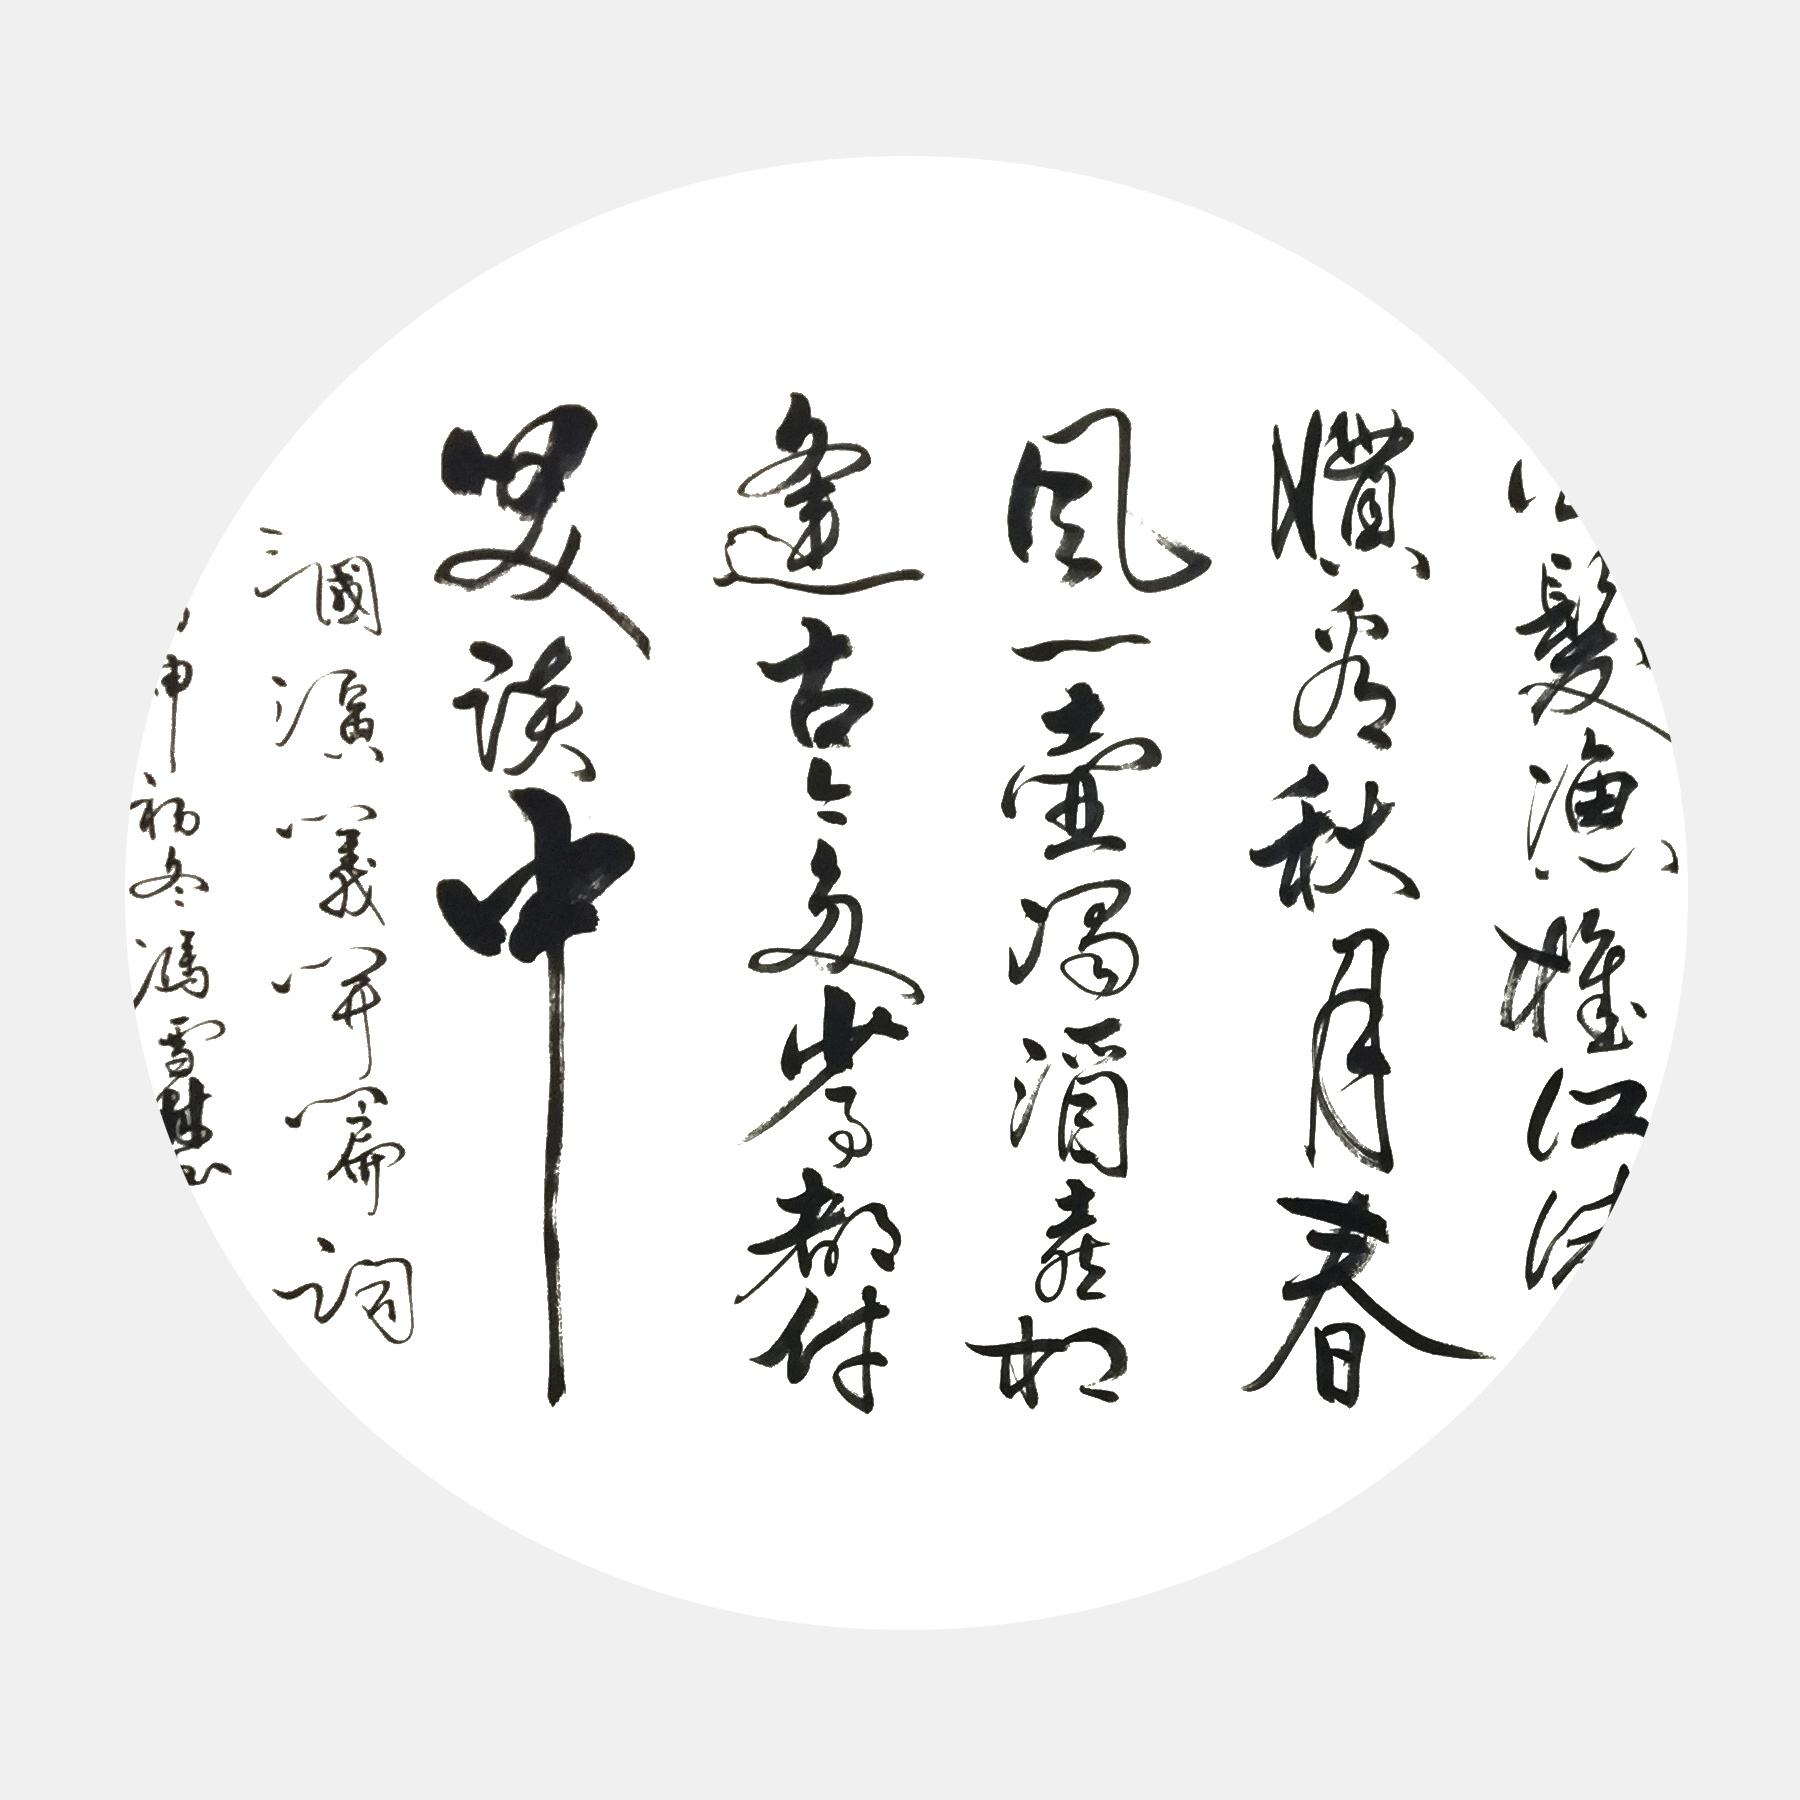 髮漁樵江渚
慣看秋月春
風一壺濁酒喜相
逢古今多少事都付
笑談中
三國演義開篇詞
申初冬馮雪